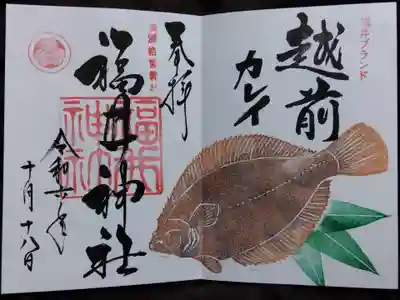 福井ブランド
越前
カレイ
奉拝
福井神社
福井
神社
令和六年
十月十八日